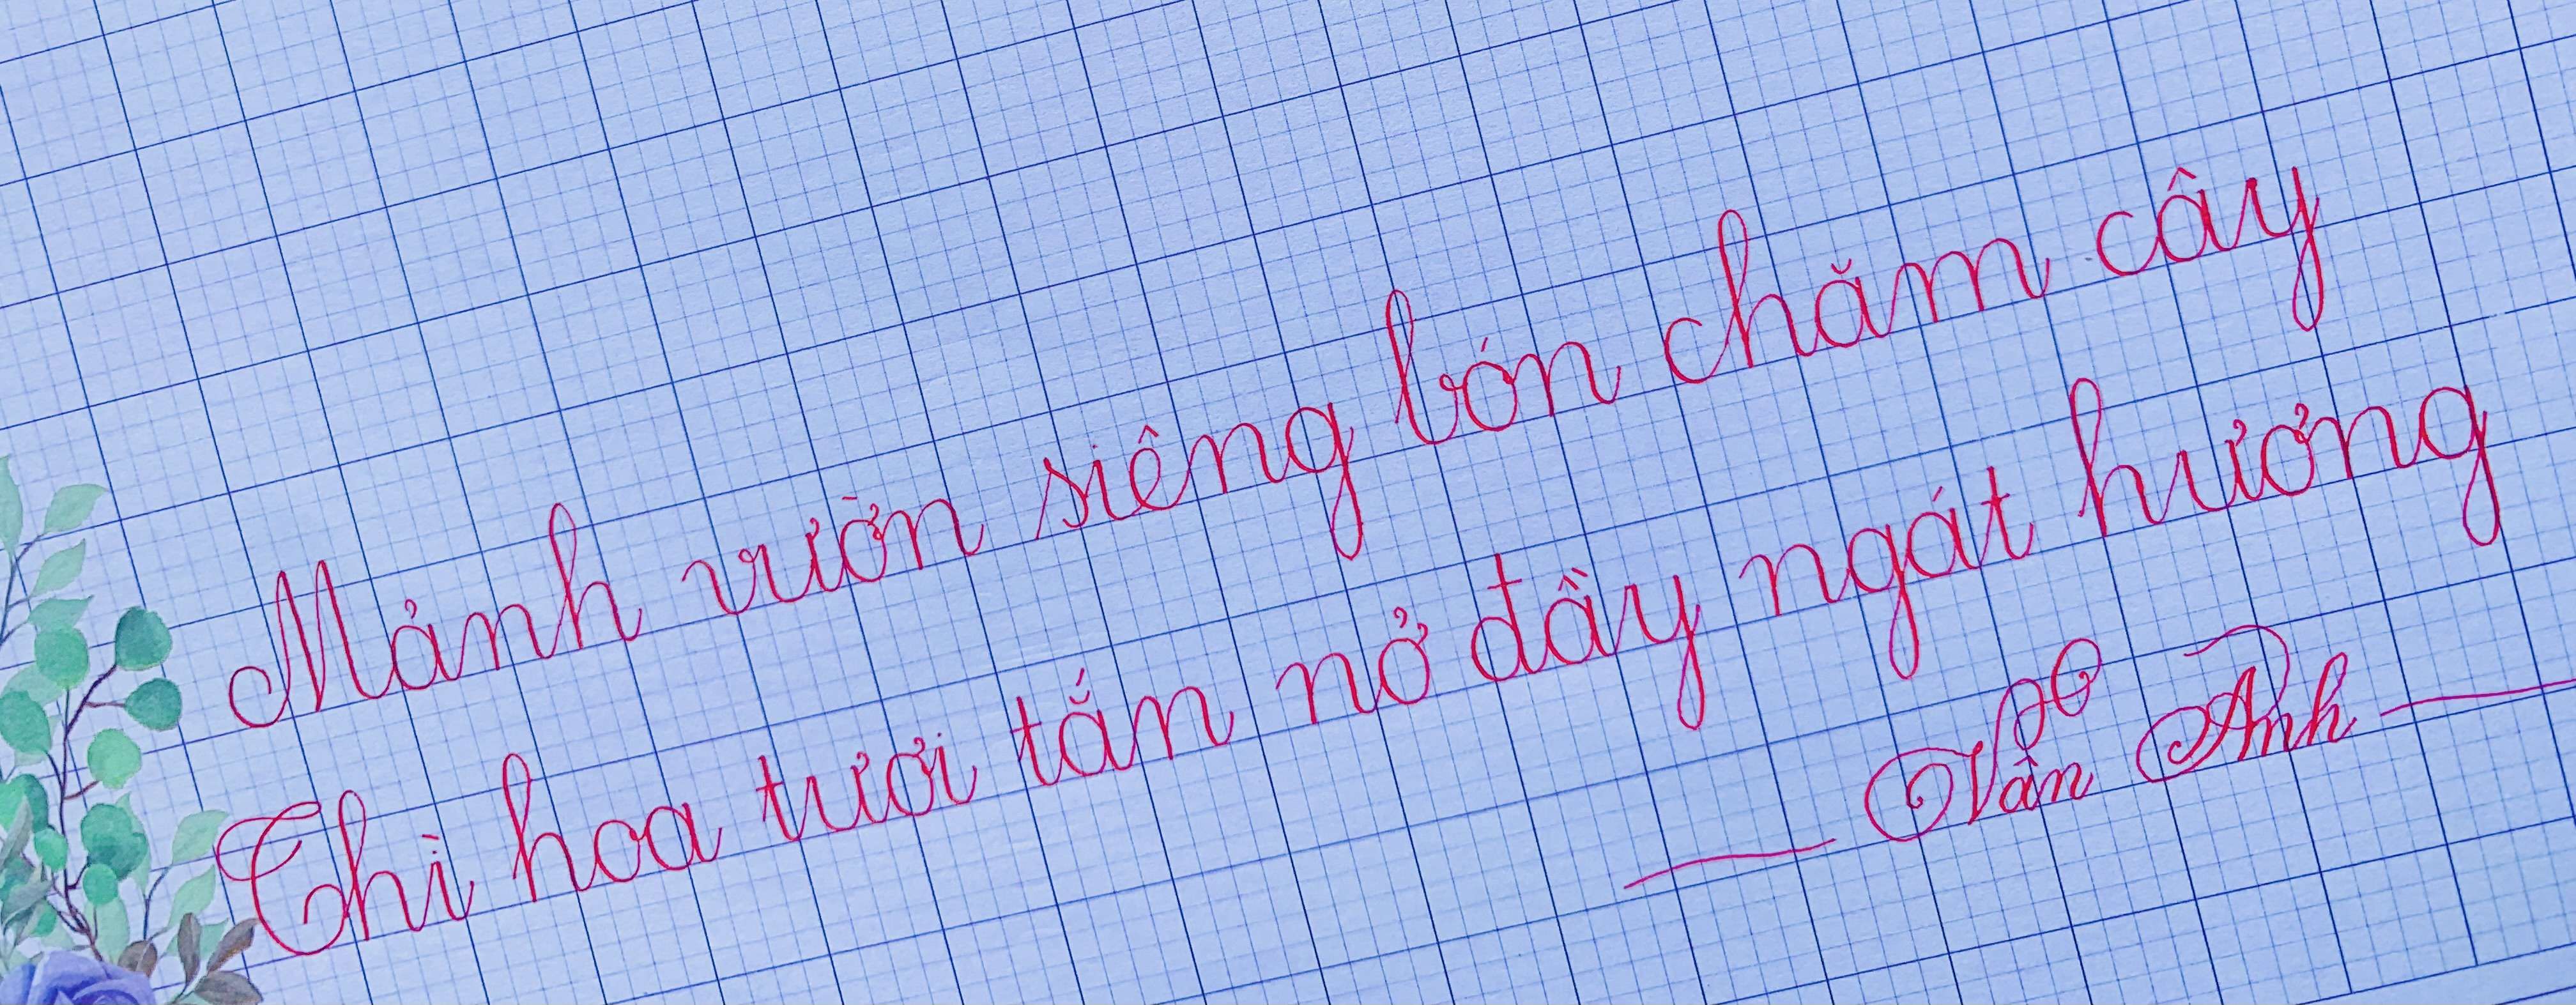 Mảnh vườn siêng bón chăm cây
Thì hoa tươi tắn nở đầy ngát hương
Vân Anh